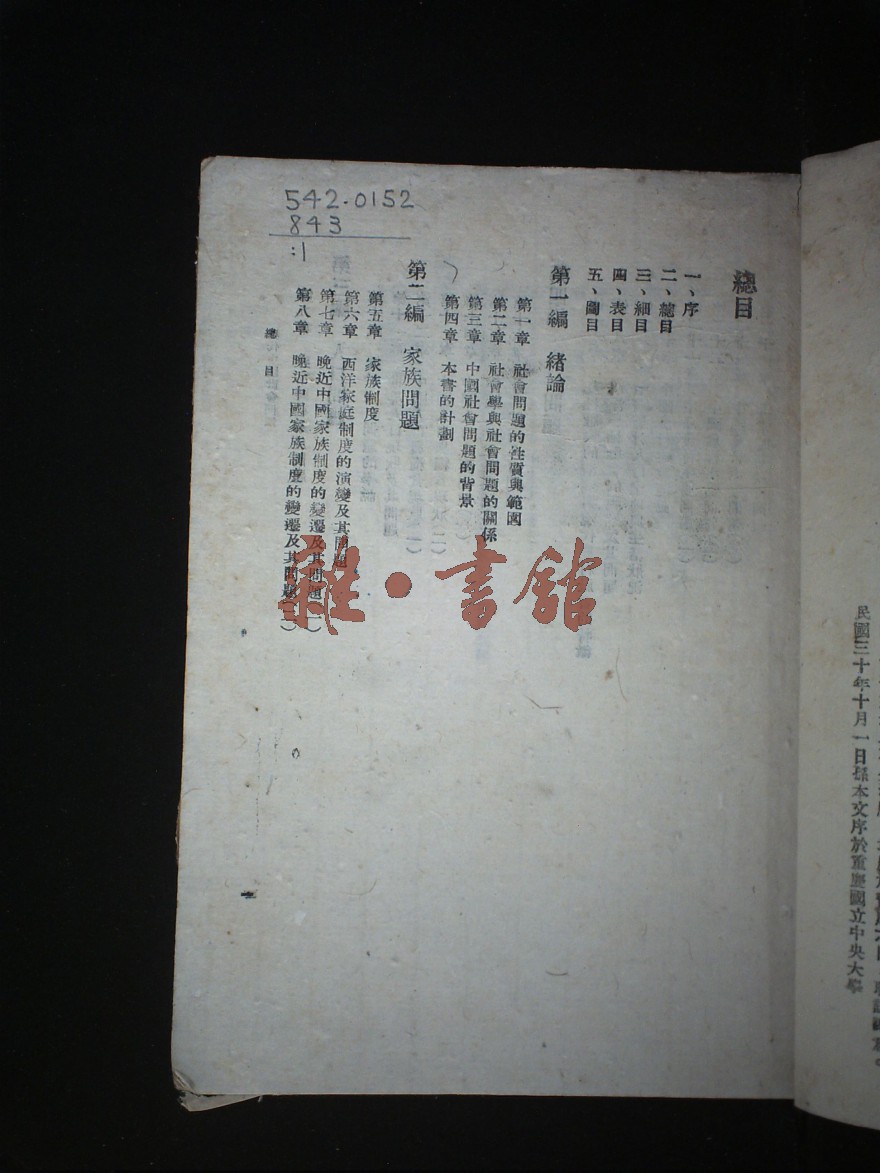 民國三十年十月一日孫本文序於重慶國立中央大學
542.0152
843
:1
總目
一、序
二、總目
三、細目
四、表目
五、圖目
第一編 緒論
第一章 社會問題的性質與範圍
第二章 社會學與社會問題的關係
第三章 中國社會問題的背景
第四章 本書的計劃
第二編 家族問題
第五章 家族制度
第六章 西洋家庭制度的演變及其問題
第七章 晚近中國家族制度的變遷及其問題(一)
第八章 晚近中國家族制度的變遷及其問題(二)
總目
雜·書館